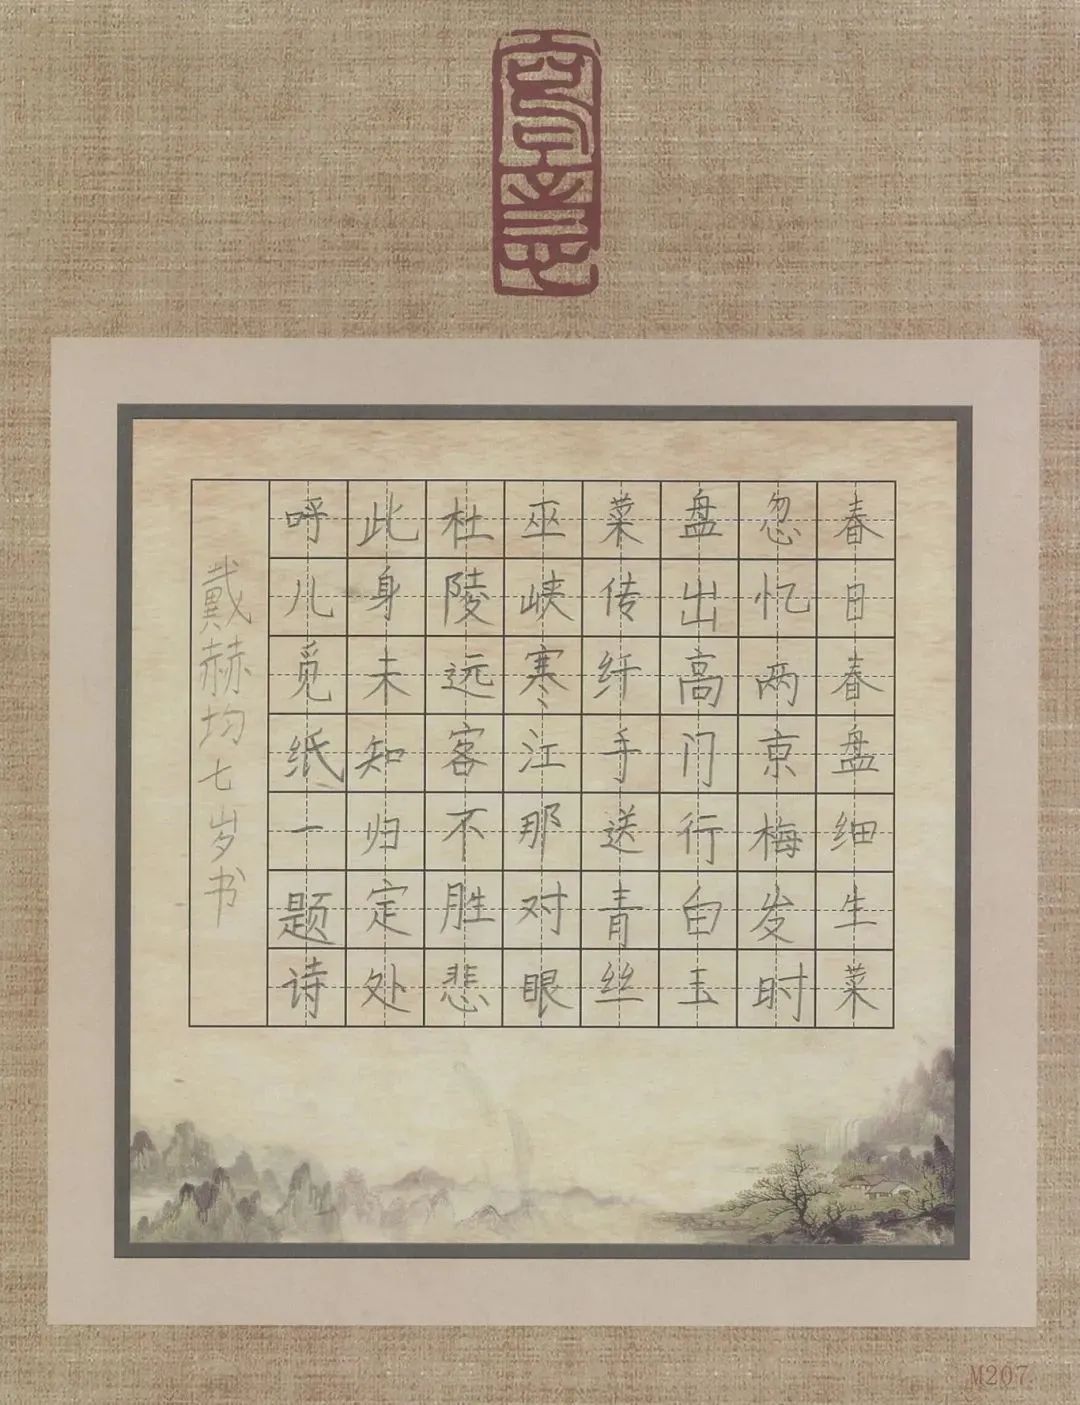 春日春盘细生菜
忽忆两京梅发时
盘出高门行白玉
菜传纤手送青丝
巫峡寒江那对眼
杜陵远客不胜悲
此身未知归定处
呼儿觅纸一题诗
戴赫均七岁书
M207